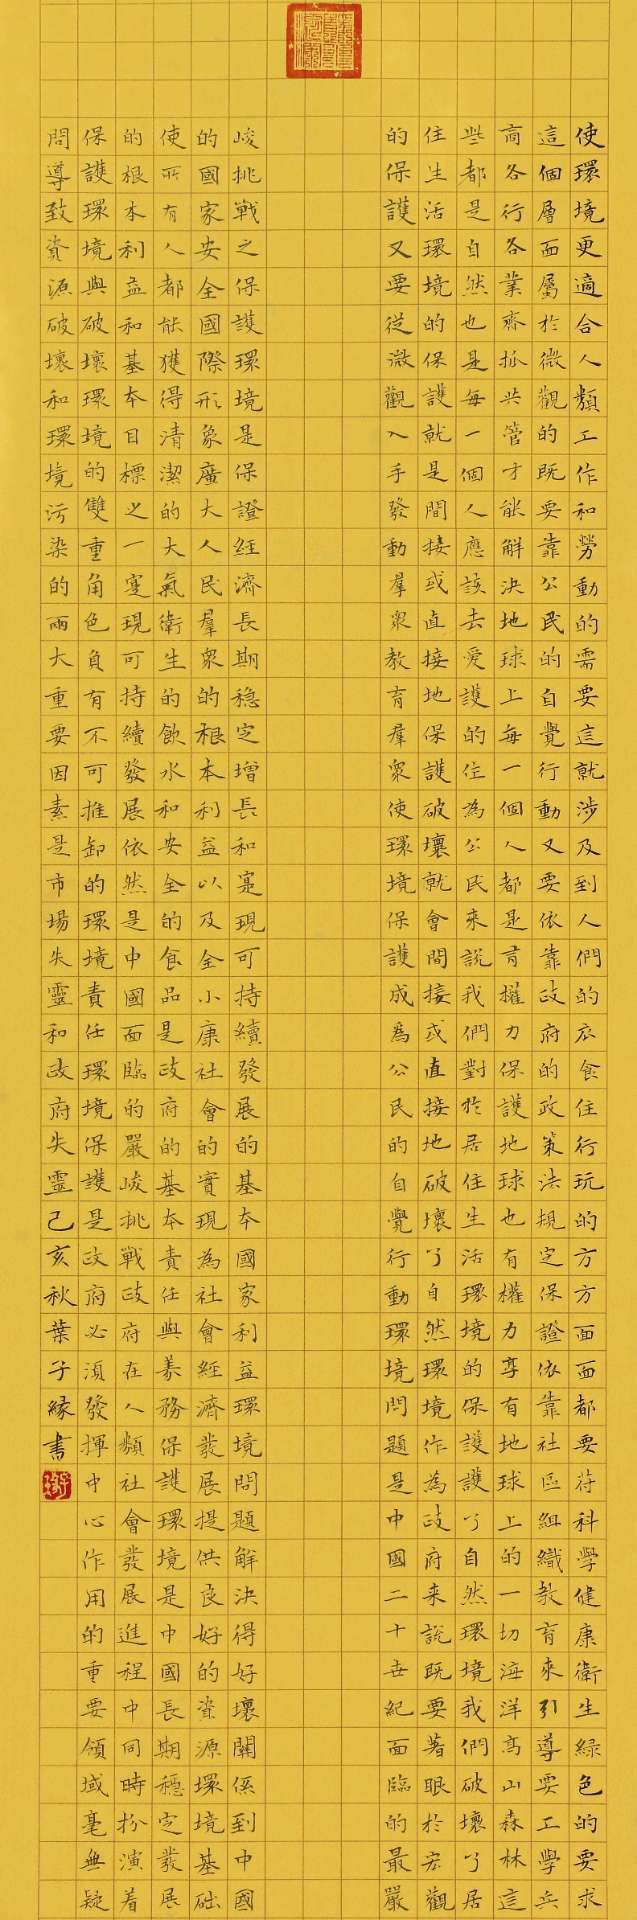 使環境更適合人類工作和勞動的需要這就涉及到人們的衣食住行玩的方方面面都要符科學健康衛生綠色的要求
這個層面屬於微觀的既要靠公民的自覺行動又要依靠政府的政策法規定保證依靠社區組織教育來引導要工學兵
商各行各業齊抓共管才能解決地球上每一個人都是有權力保護地球也有權力享有地球上的一切海洋高山森林這
些都是自然也是每一個人應該去愛護的住為公民來說我們對於居住生活環境的保護護了自然環境我們破壞了居
住生活環境的保護就是間接或直接地保護破壞就會間接或直接地破壞了自然環境作為政府来說既要著眼於宏觀
的保護又要從微觀入手發動羣眾教育羣眾使環境保護成為公民的自覺行動環境問題是中國二十世紀面臨的最嚴
峻挑戰之保護環境是保證經濟長期穩定增長和寔現可持續發展的基本國家利益環境問題解決得好壞關係到中國
的國家安全國際形象廣大人民羣眾的根本利益以及全小康社會的實現為社會經濟發展提供良好的資源環境基础
使所有人都能獲得清潔的大氣衛生的飲水和安全的食品是政府的基本責任與義務保護環境是中國長期穩定發展
的根本利益和基本目標之一寔現可持續發展依然是中國面臨的嚴峻挑戰政府在人類社會發展進程中同時扮演着
保護環境與破壞環境的雙重角色負有不可推卸的環境責任環境保護是政府必須發揮中心作用的重要領域毫無疑
問導致資源破壞和環境污染的兩大重要因素是市場失靈和政府失靈己亥秋葉子緣書